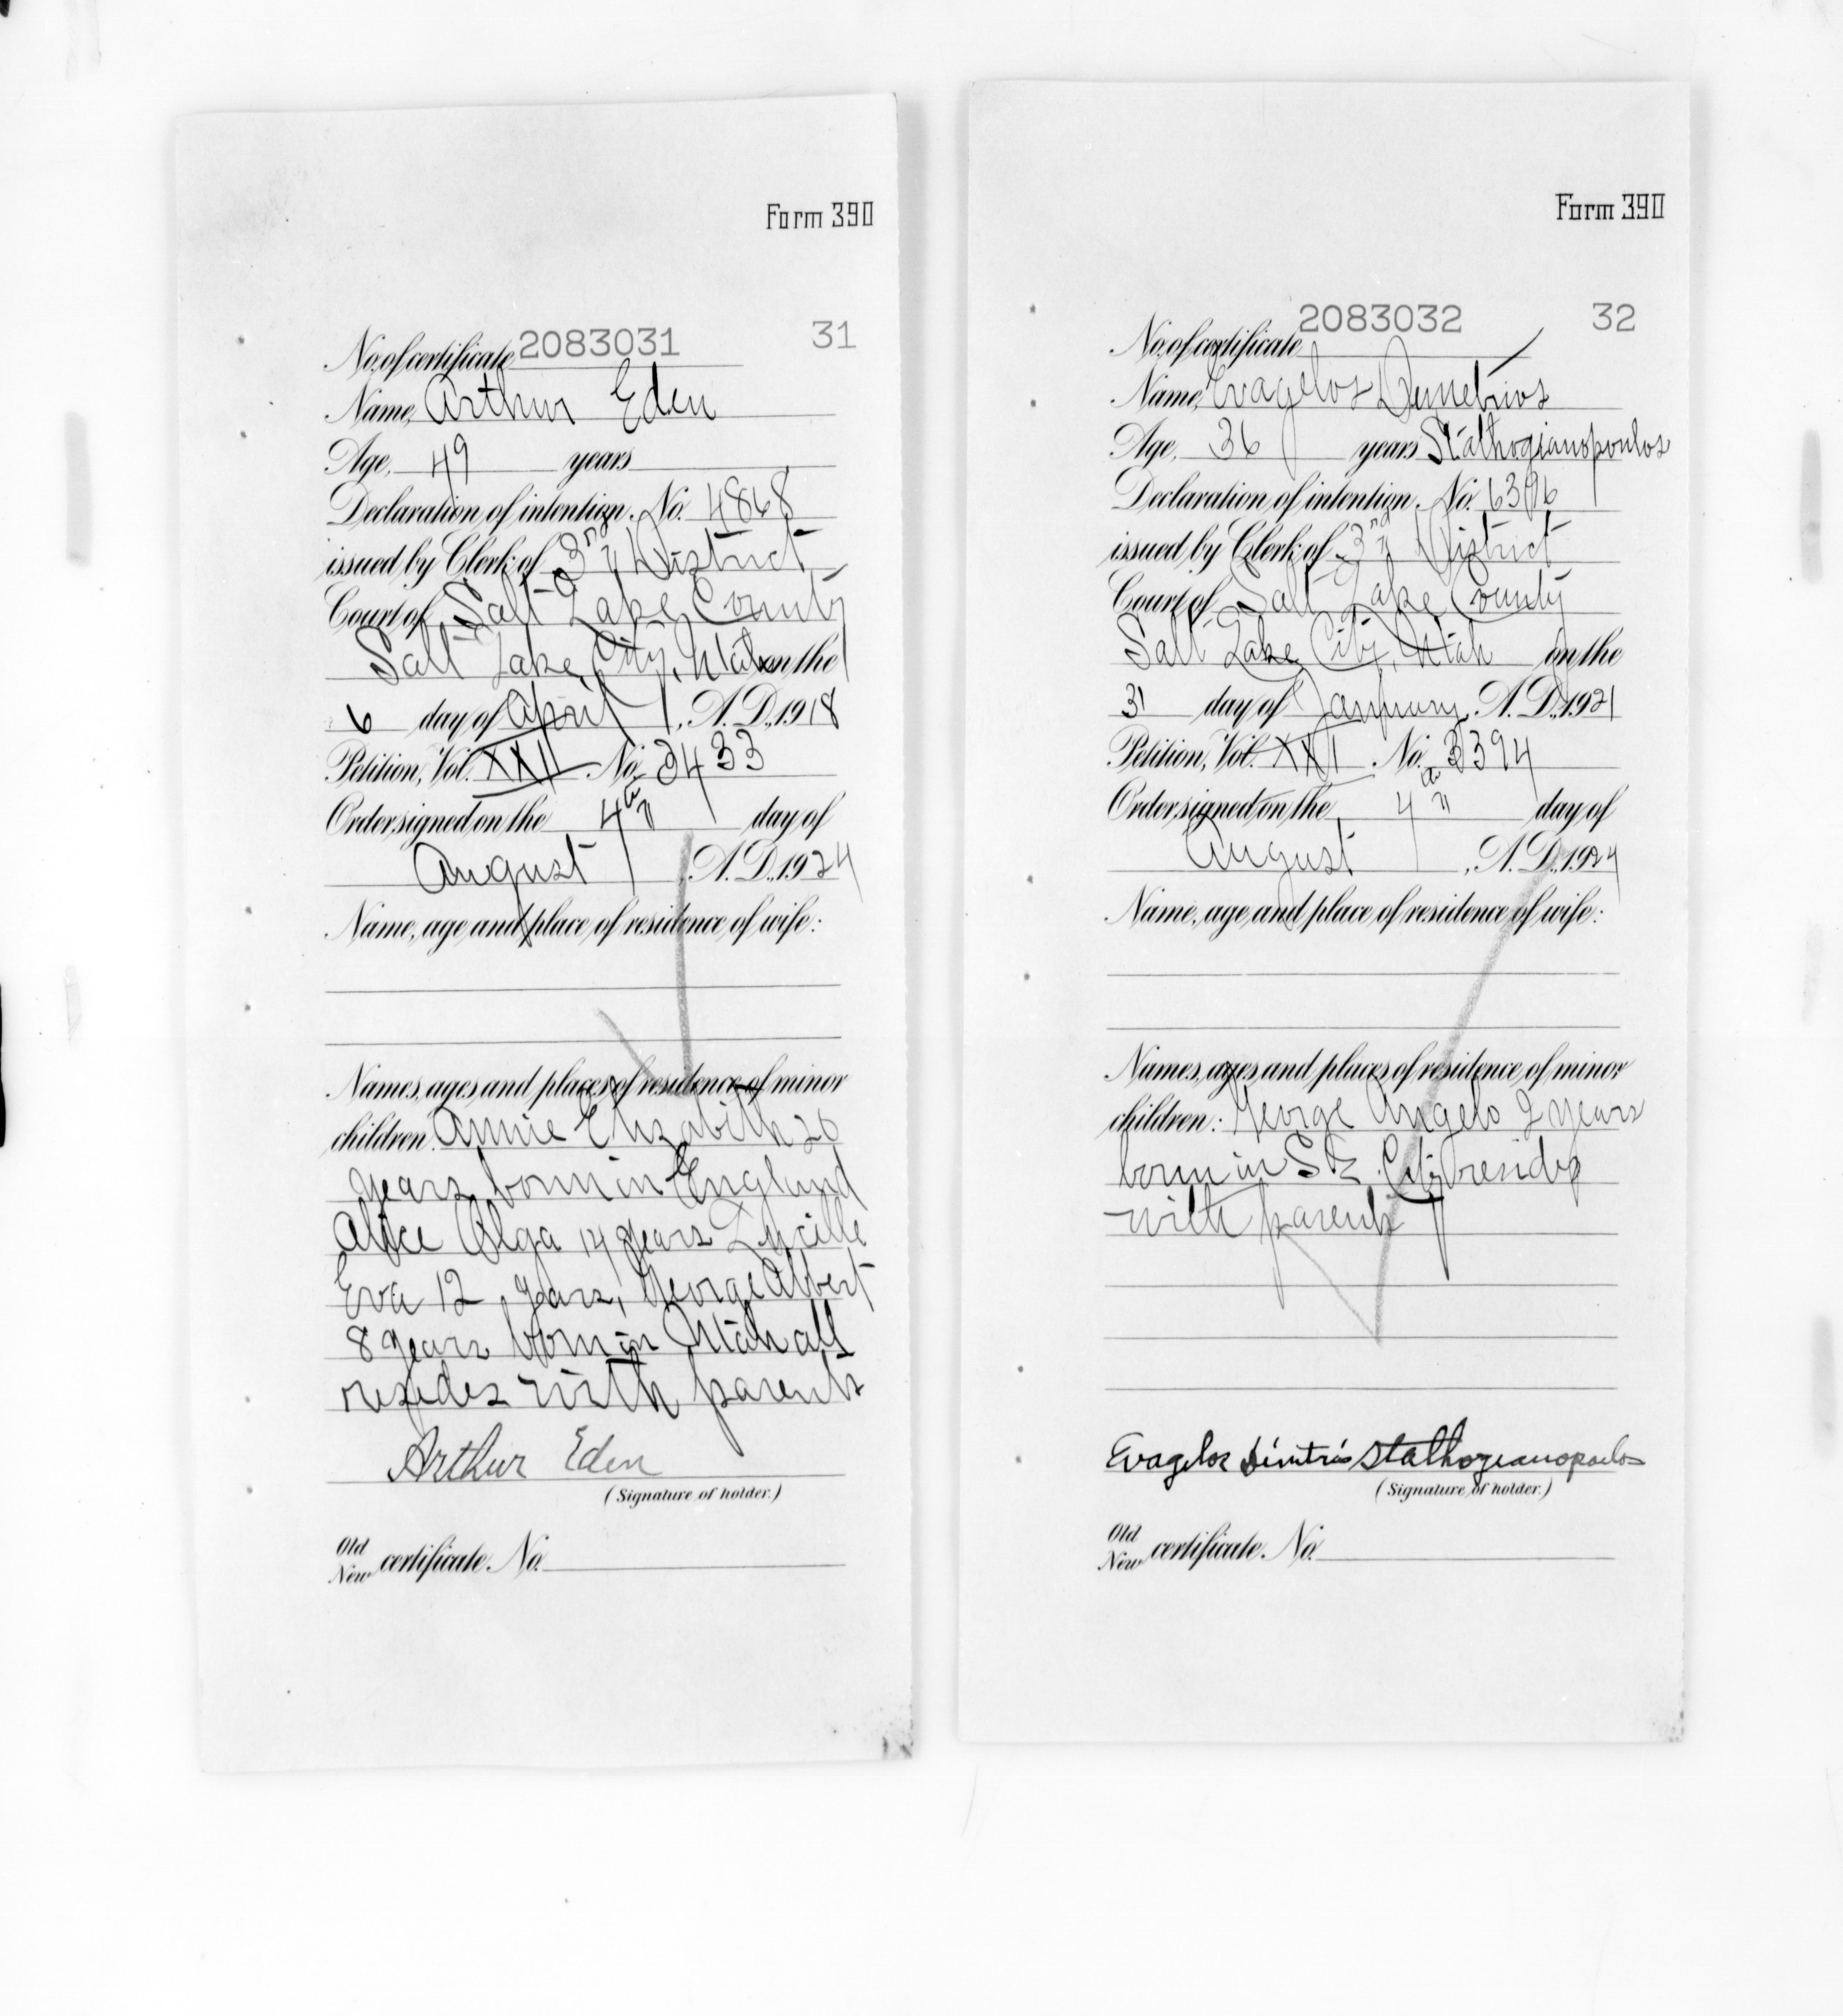 Form 390
No. of certificate 2083031 31
Name, Arthur Eden
Age, 49 years
Declaration of intention. No. 4868
issued by Clerk of 3rd District
Court of Salt Lake County
Salt Lake City, Utah on the
6 day of April, A. D., 1918
Petition, Vol. XXII No. 3433
Order signed on the 4th day of
August, A. D., 1924
Name, age and place of residence of wife:
Names, ages and places of residence of minor
children. Annie Elizabeth 20
years born in England
Alice Olga 14 years Lucille
Eva 12 years, George Albert
8 years born in Utah all
resides with parents
Arthur Eden
(Signature of holder.)
Old
New certificate. No.
Form 390
No. of certificate 2083032 32
Name, Evagelos Demetrios
Age, 36 years Stathogianopoulos
Declaration of intention. No. 6396
issued by Clerk of 3rd District
Court of Salt Lake County
Salt Lake City, Utah on the
31 day of January, A. D., 1921
Petition, Vol. XXII. No. 3394
Order signed on the 4th day of
August, A. D., 1924
Name, age and place of residence of wife:
Names, ages and places of residence of minor
children: George Angelo 2 years
born in S L City resides
with parents
Evagelos Dimitrios Stathogianopoulos
(Signature of holder.)
Old
New certificate. No.